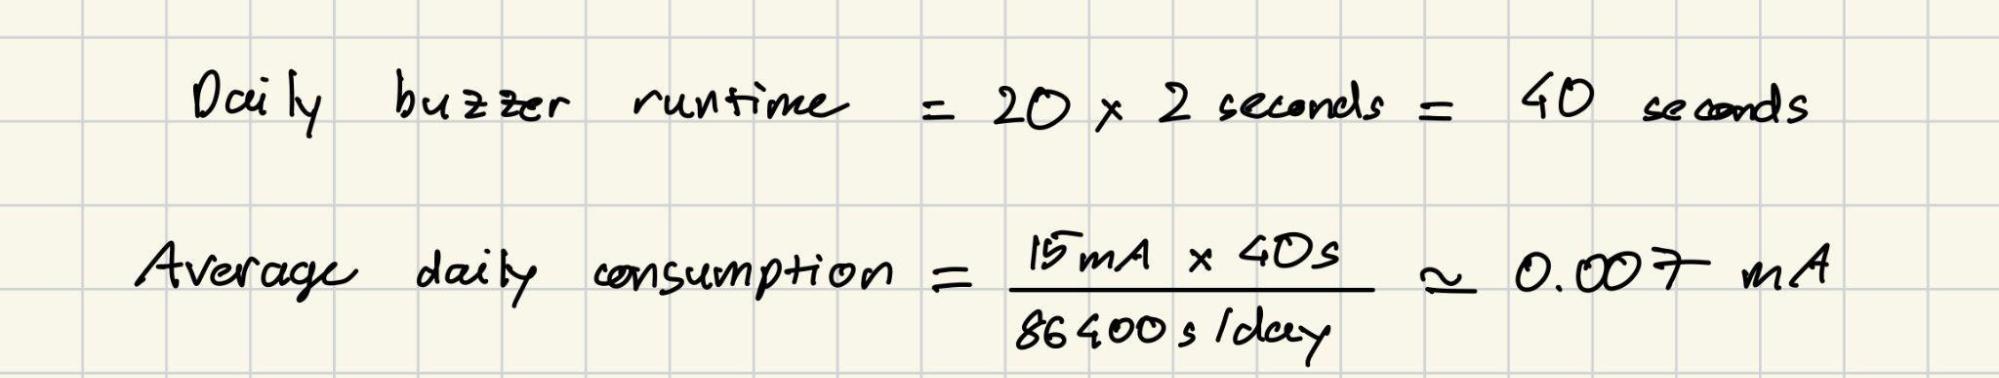 Daily buzzer runtime = 20 × 2 seconds = 40 seconds
Average daily consumption = 15mA × 40s / 86400s/day ≃ 0.007 mA